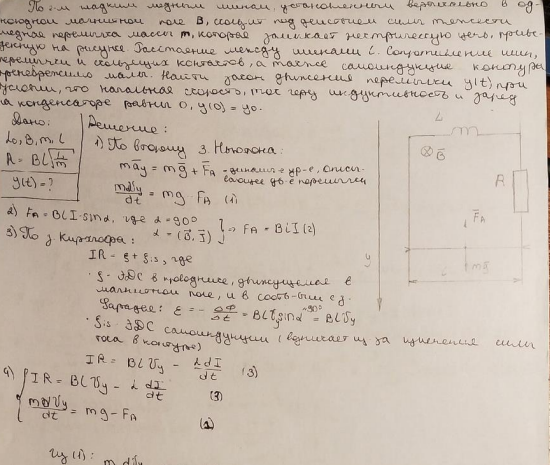 По 2-м гладким медным шинам, установленным вертикально в од-
нородном магнитном поле B, скользит под действием силы тяжести
медная перемычка массы m, которая замыкает электрическую цепь, приве-
денную на рисунке. Расстояние между шинами l. Сопротивление шин,
перемычки и скользящих контактов, а также самоиндукция контура
пренебрежимо малы. Найти закон движения перемычки y(t) при
условии, что начальная скорость, ток через индуктивность и заряд
на конденсаторе равны 0, y(0) = y₀.
Дано:
L₀, B, m, l
R = Bl√(L/m)
y(t) = ?
Решение:
1) По второму з. Ньютона:
ma⃗y = mg⃗ + F⃗A - динамич. ур-е, описы-
вающее дв-е перемычки
mdVy/dt = mg FA (1)
2) FA = BlI·sinα, где α = 90°
α = (B⃗, I⃗) } ⇒ FA = BlI (2)
3) По з. Кирхгофа:
IR = ξ + ξis, где
· ξ - ЭДС в проводнике, движущемся в
магнитном поле, и в соотв-вии с з.
Фарадея: ε = - ΔΦ/Δt = BlVy sinα = BlVy
=90°
· ξis - ЭДС самоиндукции (возникает из за изменения силы
тока в контуре)
IR = BlVy - LdI/dt (3)
4) { IR = BlVy - L dI/dt (3)
mdVy/dt = mg - FA (1)
Из (1): m dVy
L
B⃗
R
F⃗A
mg⃗
y
L